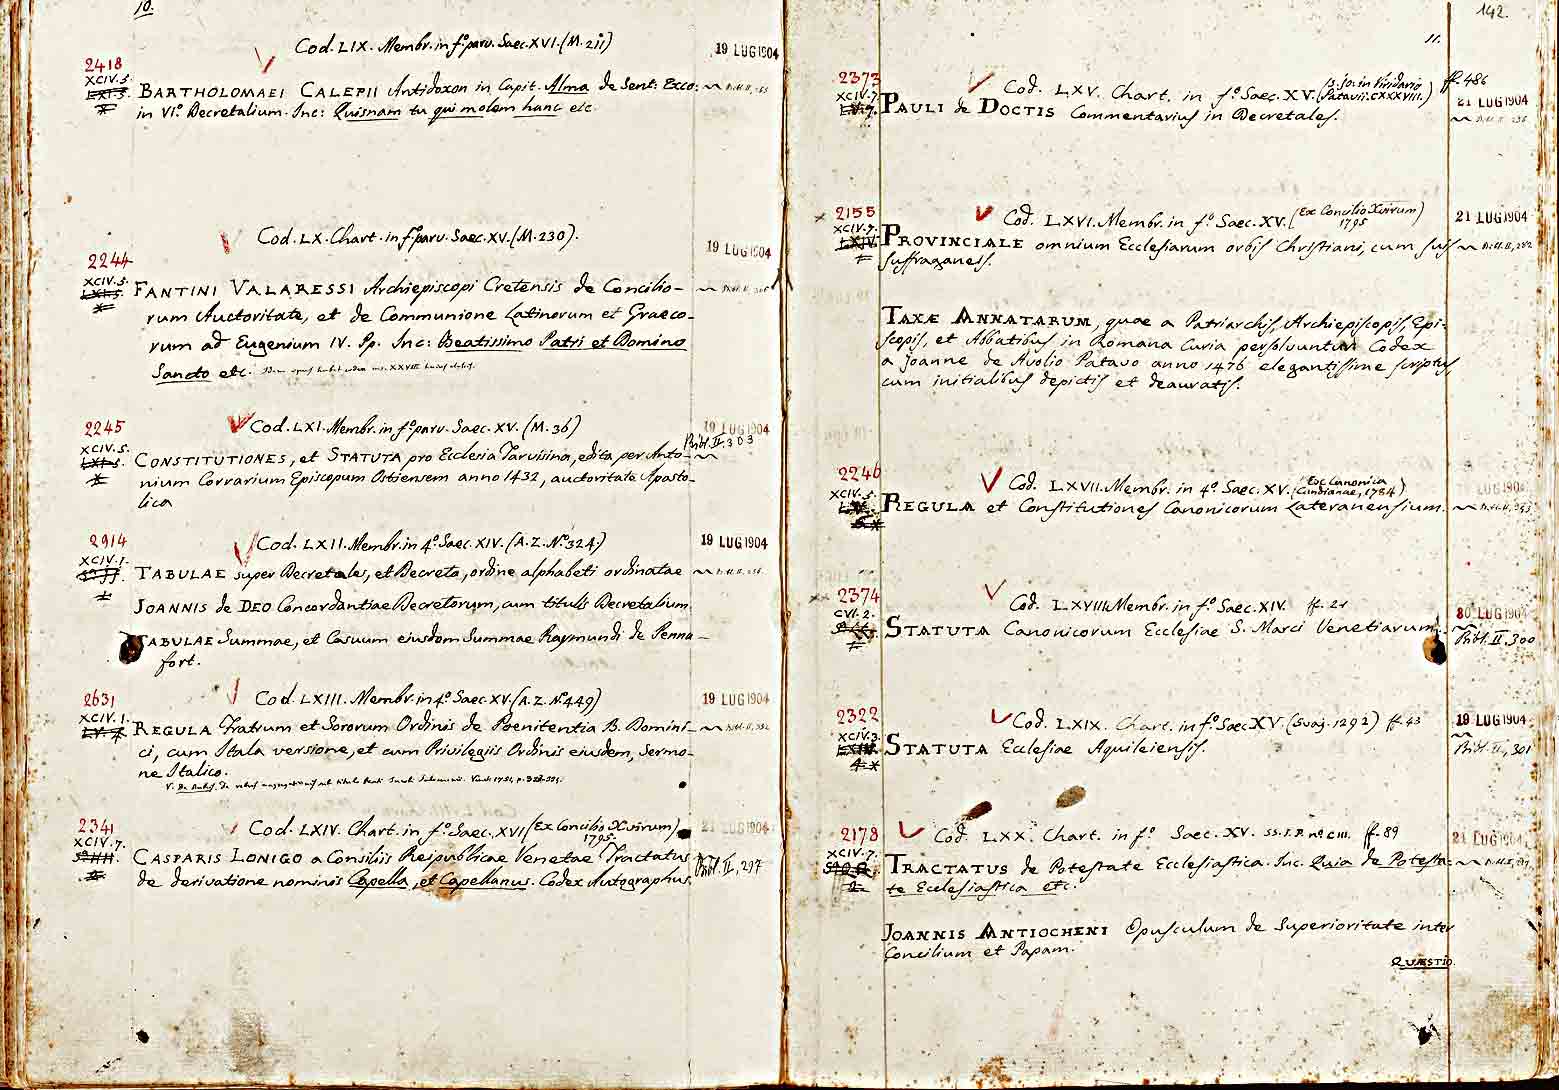 10.
Cod. LIX. Membr. in fº. parv. Saec. XVI. (M. 211)
19 LUG 1904
2418
XCIV. 5.
BARTHOLOMAEI CALEPII Antidoxon in Capit. Alma de Sent. Exco:
in VIº. Decretalium. Inc: Quisnam tu qui molem hanc etc.
Cod. LX. Chart. in fº. parv. Saec. XV. (M. 230).
19 LUG 1904
2244
XCIV. 5.
FANTINI VALARESSI Archiepiscopi Cretensis de Concilio-
rum Auctoritate, et de Communione Latinorum et Graeco-
rum ad Eugenium IV. Pp. Inc: Beatissimo Patri et Domino
Sancto etc.
Cod. LXI. Membr. in fº. parv. Saec. XV. (M. 36)
19 LUG 1904
Bibl. II. 303
2245
XCIV. 5.
CONSTITUTIONES, et STATUTA pro Ecclesia Tarvisina, edita per Anto-
nium Corrarium Episcopum Ostiensem anno 1432, auctoritate Aposto-
lica
Cod. LXII. Membr. in 4º. Saec. XIV. (A.Z. Nº. 324.)
19 LUG 1904
2914
XCIV. 1.
TABULAE super Decretales, et Decreta, ordine alphabeti ordinatae
JOANNIS de DEO Concordantiae Decretorum, cum titulis Decretalium.
TABULAE Summae, et Casuum eiusdem Summae Raymundi de Penna-
fort.
Cod. LXIII. Membr. in 4º. Saec. XV. (A.Z. Nº. 449)
19 LUG 1904
2631
XCIV. 1.
REGULA Fratrum et Sororum Ordinis de Poenitentia B. Domini-
ci, cum Itala versione, et cum Privilegiis Ordinis eiusdem, sermo-
ne Italico.
Cod. LXIV. Chart. in fº. Saec. XVI (Ex Concilio Xvirum)
1795.
21 LUG 1904
2341
XCIV. 7.
CASPARIS LONIGO a Consiliis Reipublicae Venetae Tractatus
de derivatione nominis Capella, et Capellanus. Codex Autographus.
Bibl. II, 297
142.
11.
Cod. LXV. Chart. in fº. Saec. XV. (S. Jo: in Viridario
Patavii. CXXXVIII.)
ff. 486
21 LUG 1904
2373
XCIV. 7.
PAULI de DOCTIS Commentarius in Decretales.
Cod. LXVI. Membr. in fº. Saec. XV. (Ex Concilio Xvirum)
1795
21 LUG 1904
2155
XCIV. 7.
PROVINCIALE omnium Ecclesiarum orbis Christiani, cum suis
suffraganeis.
TAXÆ ANNATARUM, quae a Patriarchis, Archiepiscopis, Epi-
scopis, et Abbatibus in Romana Curia persolvuntur. Codex
a Joanne de Avolio Patavo anno 1476 elegantissime scriptus,
cum initialibus depictis et deauratis.
Cod. LXVII. Membr. in 4º. Saec. XV. (Ex Canonica
Candianae, 1784)
LUG 1904
2246
XCIV. 5.
REGULA et Constitutiones Canonicorum Lateranensium.
Cod. LXVIII. Membr. in fº. Saec. XIV. ff. 21
LUG 1904
2374
CVI. 2.
STATUTA Canonicorum Ecclesiae S. Marci Venetiarum.
Bibl. II, 300
Cod. LXIX. Chart. in fº. Saec. XV. (Svaj. 1292) ff. 43
19 LUG 1904
2322
XCIV. 3.
STATUTA Ecclesiae Aquileiensis.
Bibl. II, 301
Cod. LXX. Chart. in fº. Saec. XV. SS. I. P. nº CIII. ff. 89
21 LUG 1904
2178
XCIV. 7.
TRACTATUS de Potestate Ecclesiastica. Inc. Quia de Potesta-
te Ecclesiastica etc.
JOANNIS ANTIOCHENI Opusculum de Superioritate inter
Concilium et Papam.
QUÆSTIO